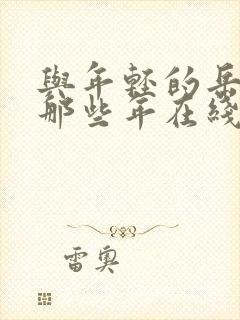 與年輕的岳
那些年在綫
雷奧